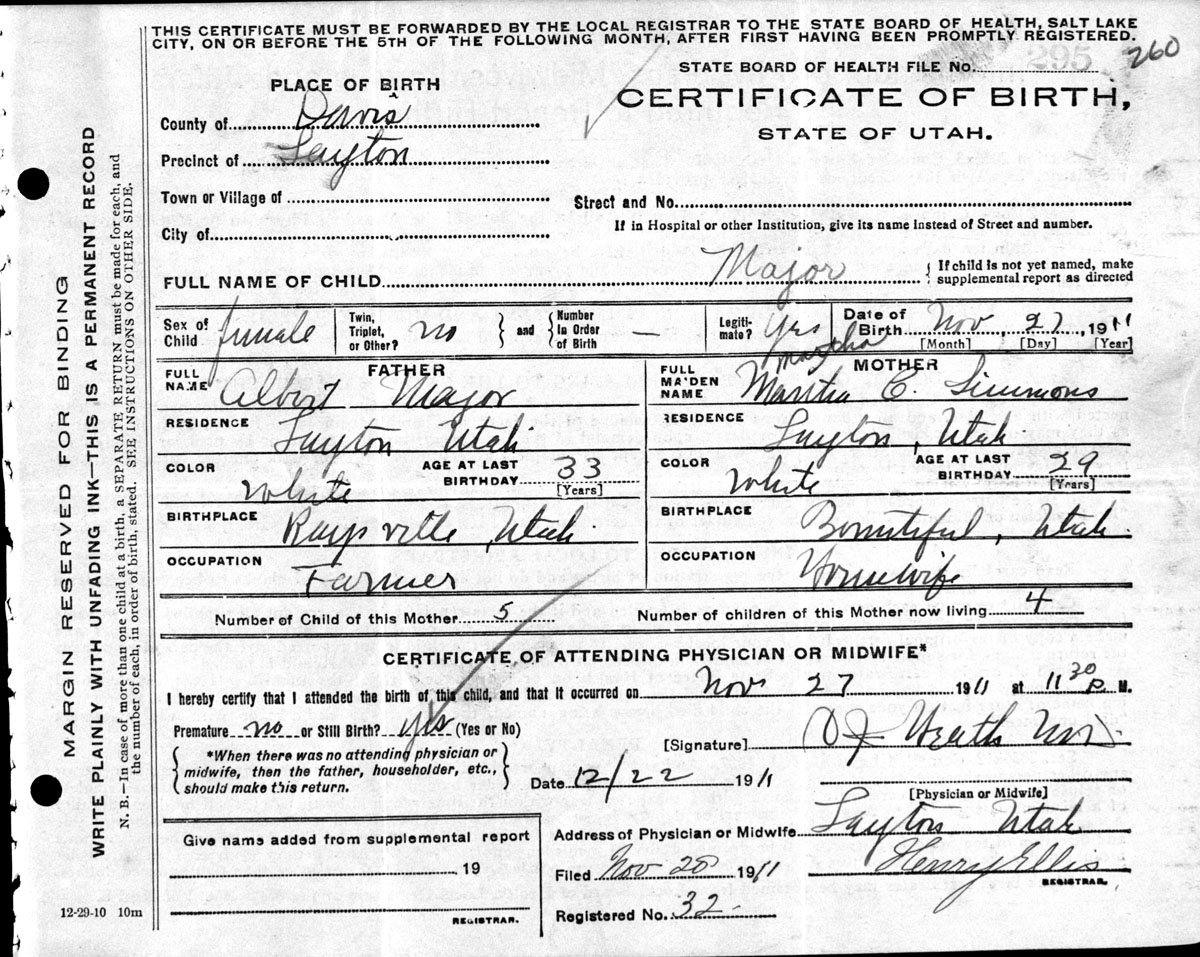 THIS CERTIFICATE MUST BE FORWARDED BY THE LOCAL REGISTRAR TO THE STATE BOARD OF HEALTH, SALT LAKE
CITY, ON OR BEFORE THE 5TH OF THE FOLLOWING MONTH, AFTER FIRST HAVING BEEN PROMPTLY REGISTERED.
STATE BOARD OF HEALTH FILE No. 295 260
PLACE OF BIRTH
CERTIFICATE OF BIRTH,
STATE OF UTAH.
County of Davis
Precinct of Layton
Town or Village of
Street and No.
City of
If in Hospital or other Institution, give its name Instead of Street and number.
FULL NAME OF CHILD Major
If child is not yet named, make
supplemental report as directed
Sex of Child female Twin, Triplet, or Other? no and Number In Order of Birth — Legiti-mate? Yes Date of Birth Nov, 27, 1911
[Month] [Day] [Year]
FATHER
FULL NAME Albert Major
RESIDENCE Layton Utah
COLOR White AGE AT LAST BIRTHDAY 33 [Years]
BIRTHPLACE Kaysville, Utah
OCCUPATION Farmer
MOTHER
Martha
FULL MAIDEN NAME Martha E. Simmons
RESIDENCE Layton, Utah
COLOR White AGE AT LAST BIRTHDAY 29 [Years]
BIRTHPLACE Bountiful, Utah.
OCCUPATION Housewife
Number of Child of this Mother 5 Number of children of this Mother now living 4
CERTIFICATE OF ATTENDING PHYSICIAN OR MIDWIFE*
I hereby certify that I attended the birth of this child, and that it occurred on Nov 27 1911 at 11 30 P. M.
Premature no or Still Birth? yes (Yes or No)
*When there was no attending physician or
midwife, then the father, householder, etc.,
should make this return.
[Signature]
Date 12/22 1911
[Physician or Midwife]
Give name added from supplemental report
19
REGISTRAR.
Address of Physician or Midwife Layton Utah
Filed Nov 28 1911 Henry Ellis
REGISTRAR.
Registered No. 32
12-29-10 10m
MARGIN RESERVED FOR BINDING
WRITE PLAINLY WITH UNFADING INK—THIS IS A PERMANENT RECORD
N. B.—In case of more than one child at a birth, a SEPARATE RETURN must be made for each, and
the number of each, in order of birth, stated. SEE INSTRUCTIONS ON OTHER SIDE.